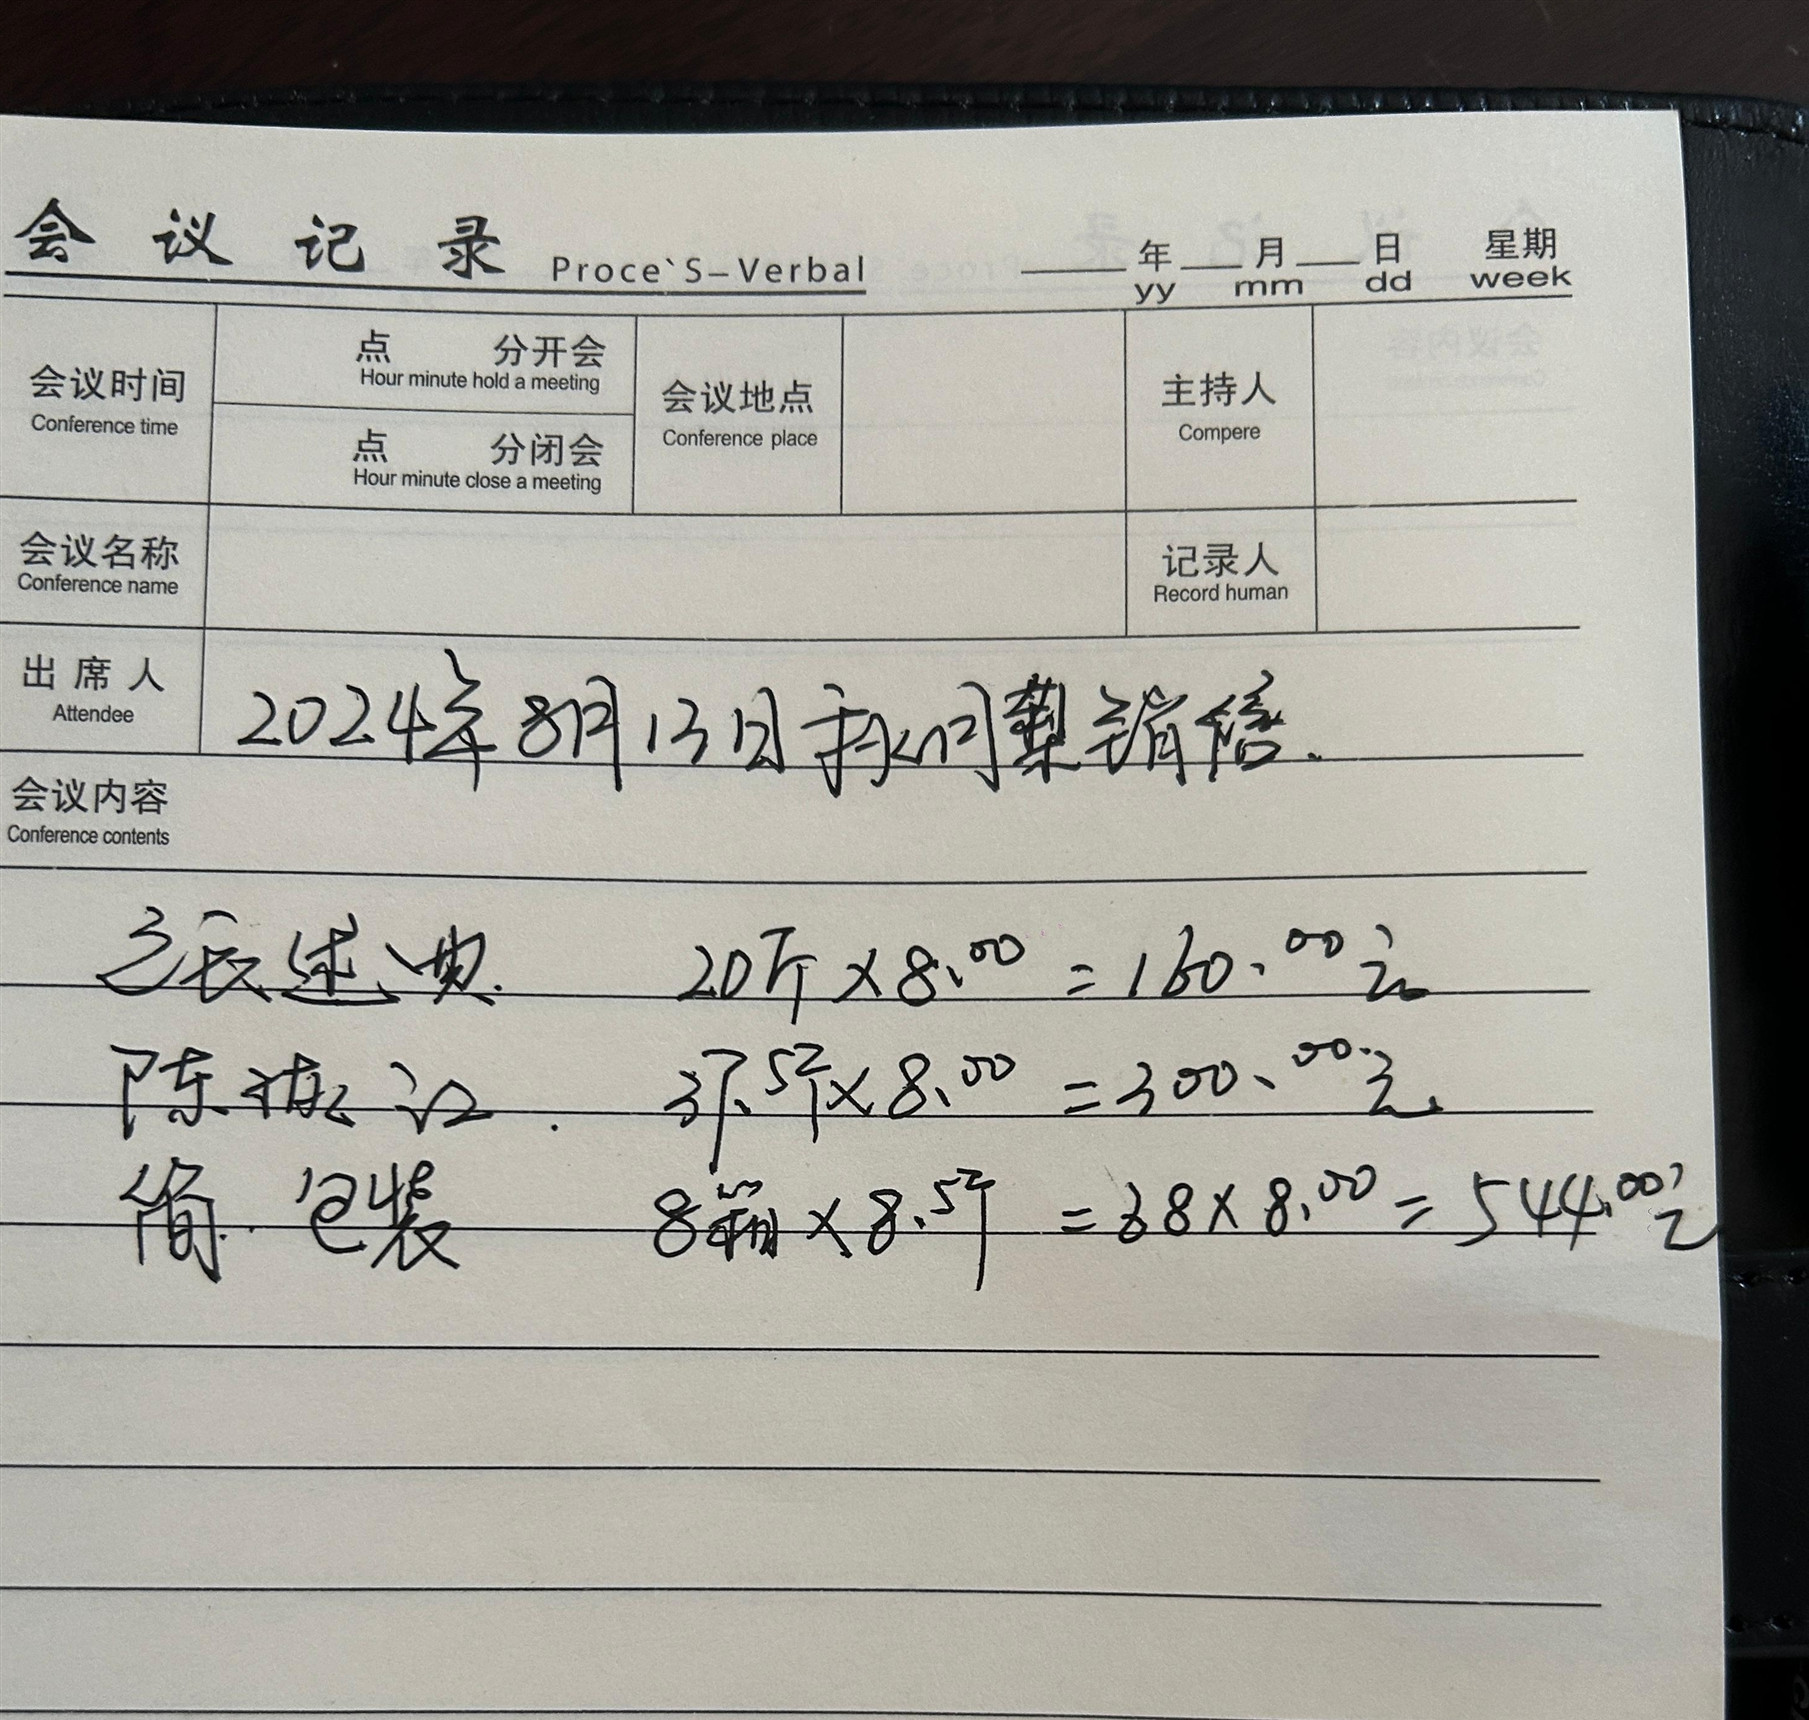 会议记录 Proce`S-Verbal 年 月 日 星期
yy mm dd week
会议时间 点 分开会 会议地点 主持人
Conference time Hour minute hold a meeting Conference place Compere
点 分闭会
Hour minute close a meeting
会议名称 记录人
Conference name Record human
出席人 2024年8月13日我们梨销售.
Attendee
会议内容
Conference contents
20斤×8.00=160.00元
陈 江. 37.5斤×8.00=300.00元
简.包装 8箱×8.5斤=68×8.00=544.00元